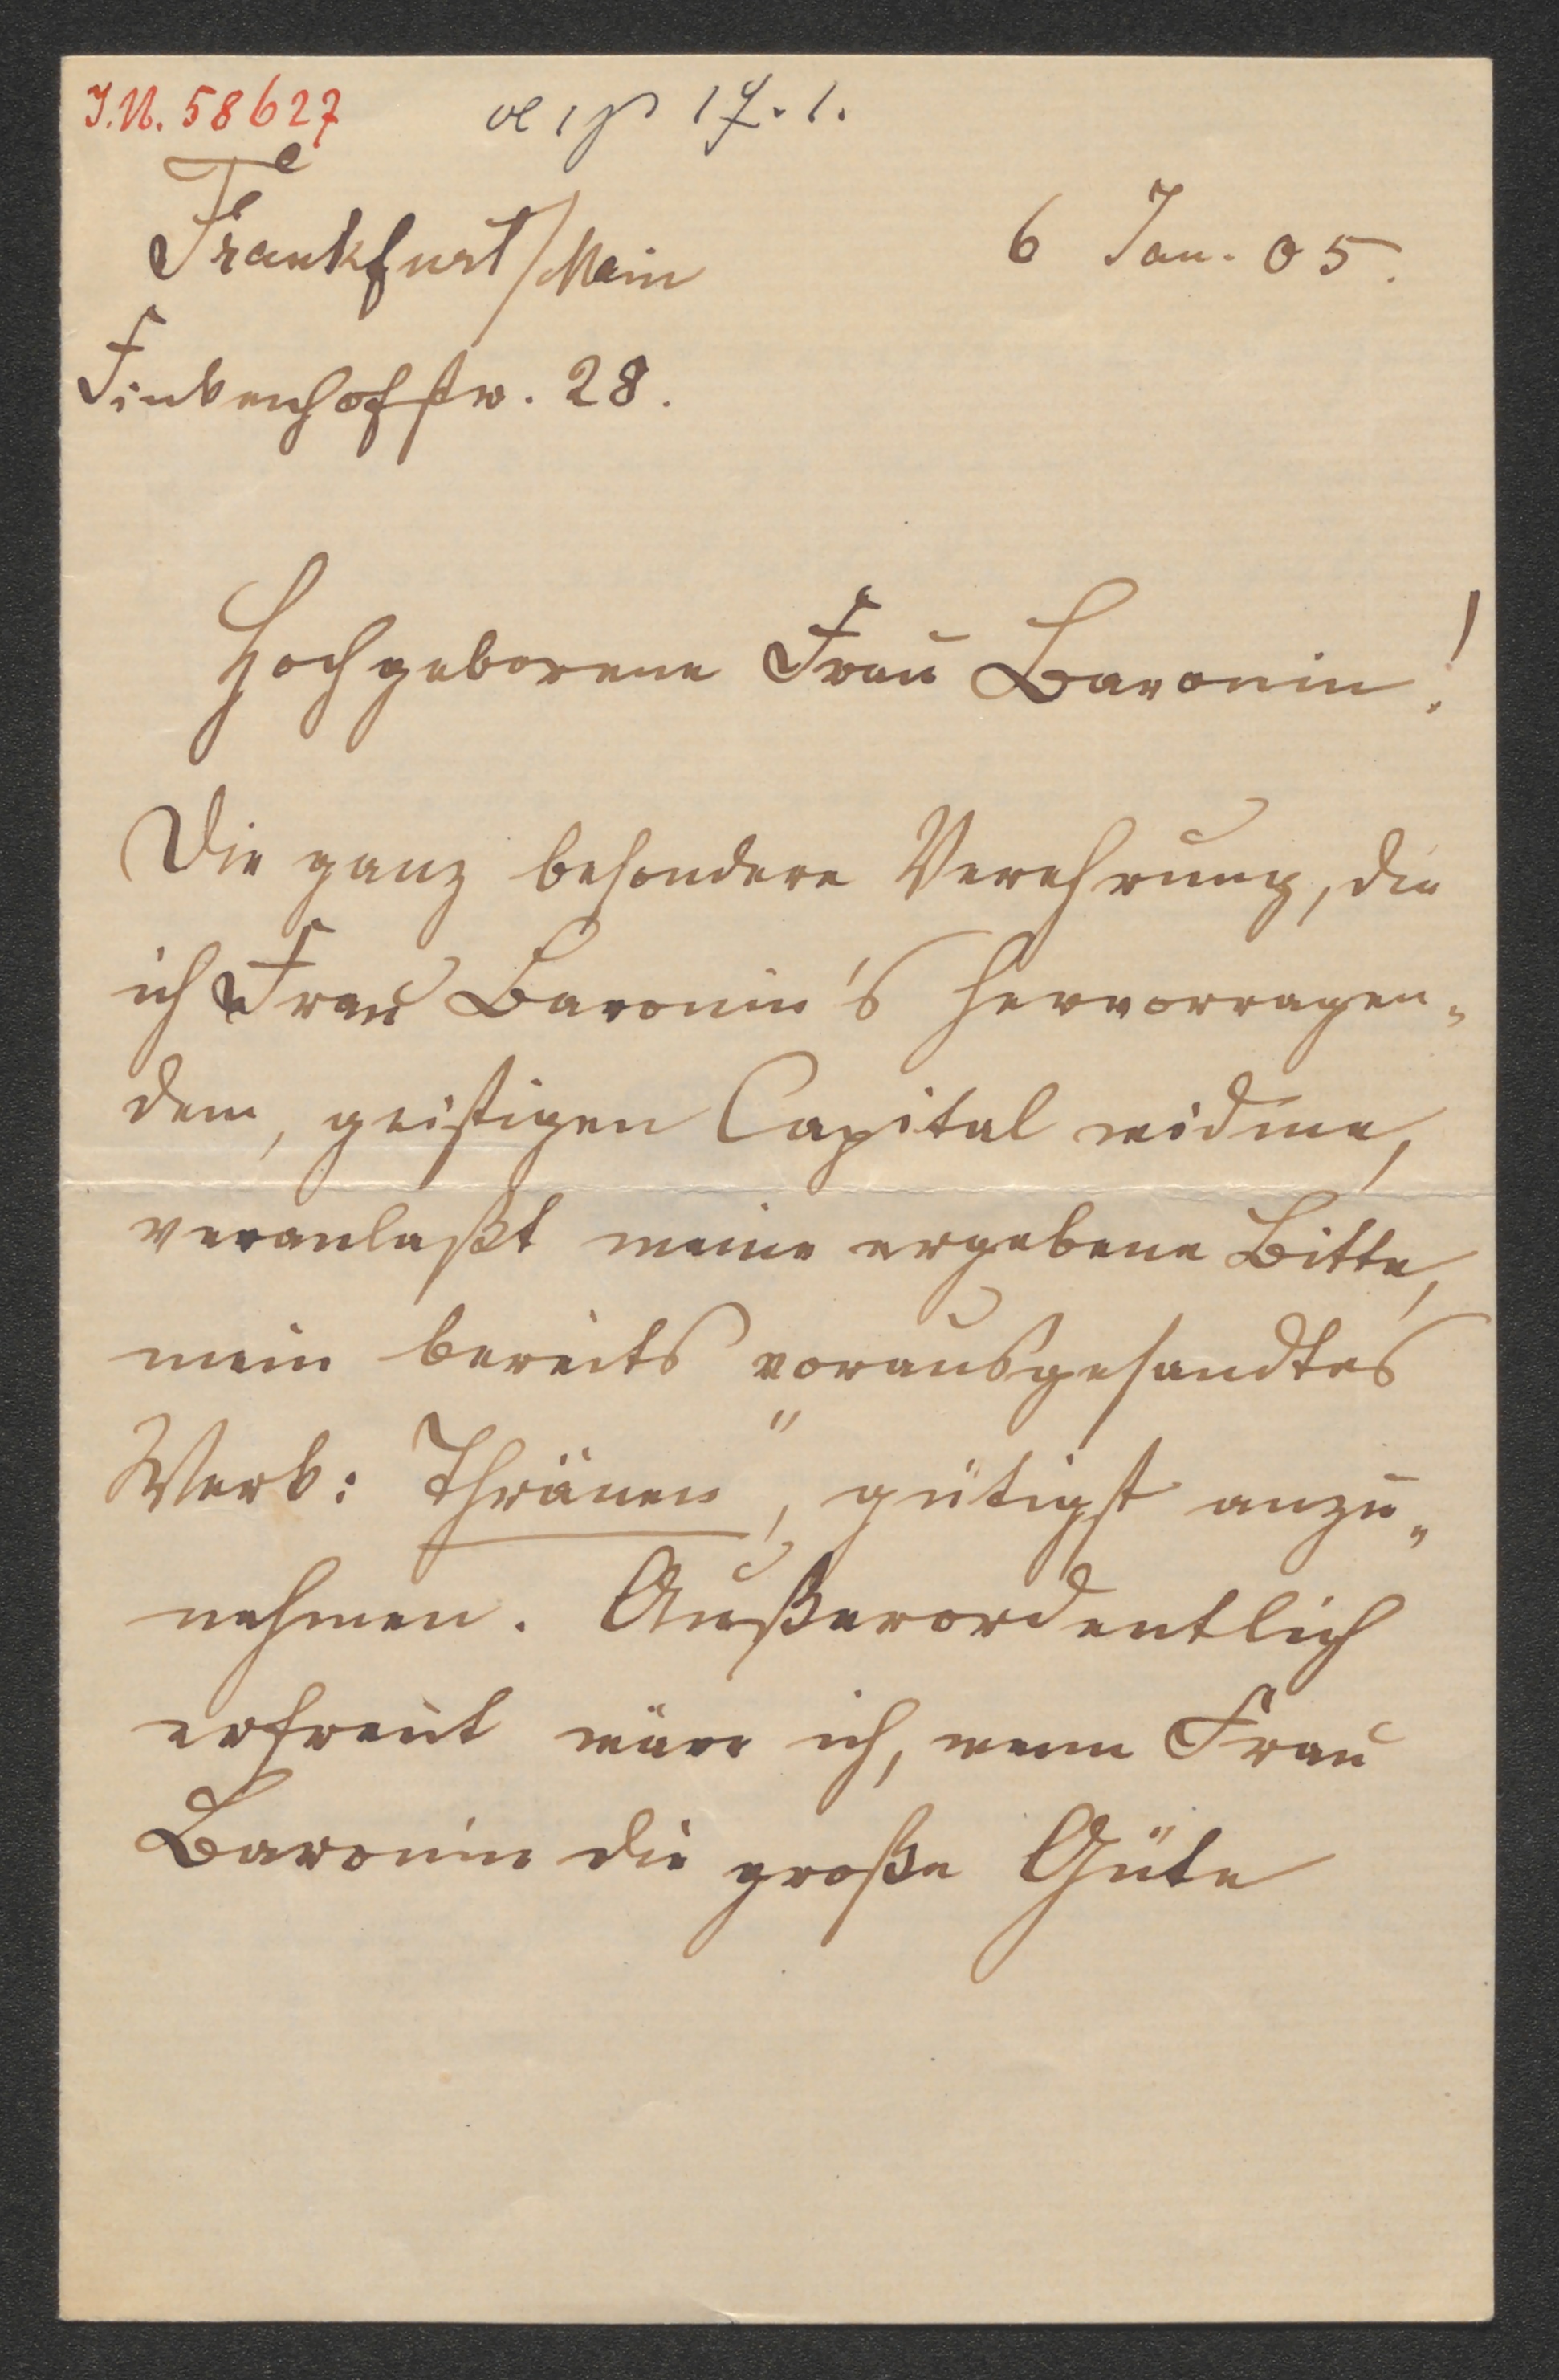 I.N. 58627
17.1.
Frankfurt/Main 6 Jan. 05.
Finkenhofstr. 28.
Hochgeborene Frau Baronin!
Die ganz besondere Verehrung, die
ich Frau Baronin's hervorragen-
dem, geistigen Capital widme,
veranlaßt meine ergebene Bitte,
mein bereits vorausgesandtes
Werk: Thränen", gütigst anzu-
nehmen. Außerordentlich
erfreut wäre ich, wenn Frau
Baronin die große Güte